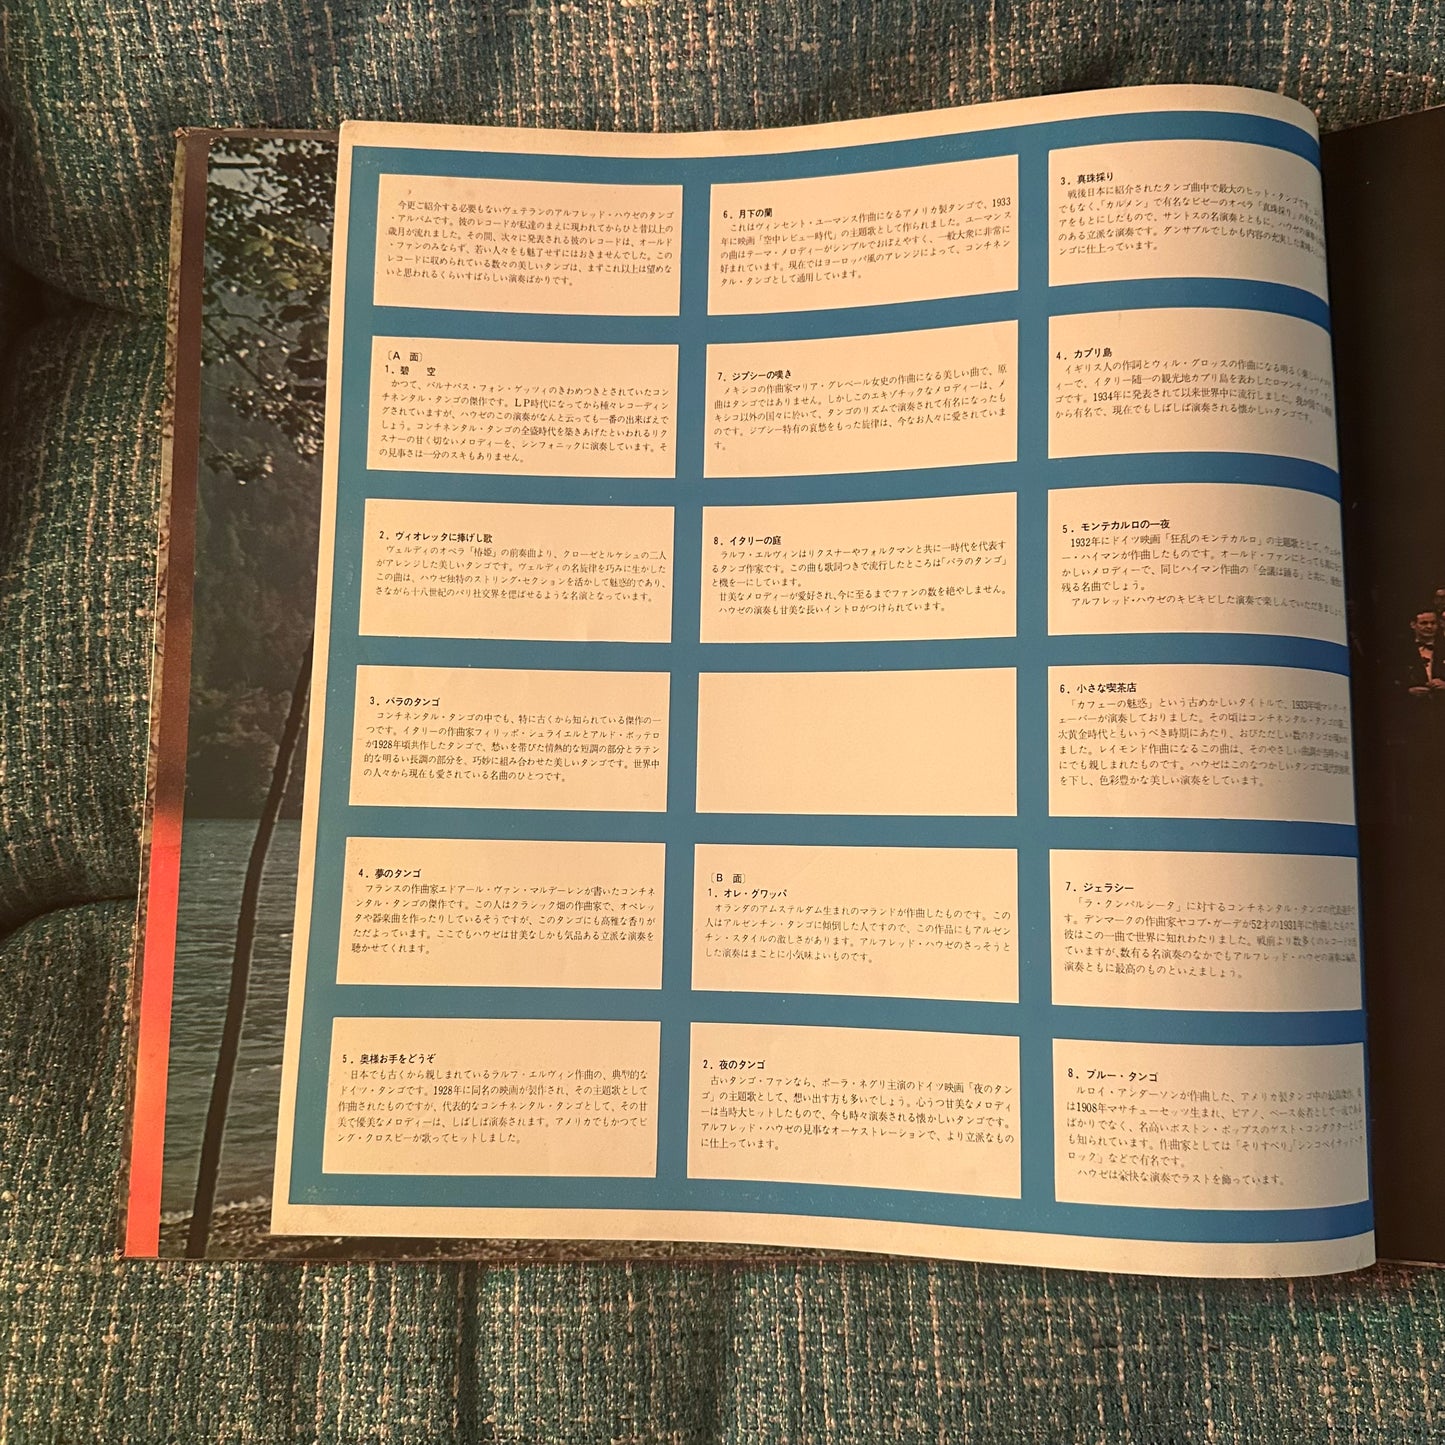 今更ご紹介する必要もないヴェテランのアルフレッド・ハウゼのタンゴ
・アルバムです。彼のレコードが私達のまえに現われてからひと昔以上の
歳月が流れました。その間、次々に発表される彼のレコードは、オールド
・ファンのみならず、若い人々をも魅了せずにはおきませんでした。この
レコードに収められている数々の美しいタンゴは、まずこれ以上は望めな
いと思われるくらいすばらしい演奏ばかりです。
〔A 面〕
1．碧 空
かつて、バルナバス・フォン・ゲッツィのきわめつきとされていたコン
チネンタル・タンゴの傑作です。LP時代になってから種々レコーディン
グされていますが、ハウゼのこの演奏がなんと云っても一番の出来ばえで
しょう。コンチネンタル・タンゴの全盛時代を築きあげたといわれるリク
スナーの甘く切ないメロディーを、シンフォニックに演奏しています。そ
の見事さは一分のスキもありません。
2．ヴィオレッタに捧げし歌
ヴェルディのオペラ「椿姫」の前奏曲より、クローゼとルケシュの二人
がアレンジした美しいタンゴです。ヴェルディの名旋律を巧みに生かした
この曲は、ハウゼ独特のストリング・セクションを活かして魅惑的であり、
さながら十八世紀のパリ社交界を偲ばせるような名演となっています。
3．バラのタンゴ
コンチネンタル・タンゴの中でも、特に古くから知られている傑作の一
つです。イタリーの作曲家フィリッポ・シュライエルとアルド・ボッテロ
が1928年頃共作したタンゴで、愁いを帯びた情熱的な短調の部分とラテン
的な明るい長調の部分を、巧妙に組み合わせた美しいタンゴです。世界中
の人々から現在も愛されている名曲のひとつです。
4．夢のタンゴ
フランスの作曲家エドアール・ヴァン・マルデーレンが書いたコンチネ
ンタル・タンゴの傑作です。この人はクラシック畑の作曲家で、オペレッ
タや器楽曲を作ったりしているそうですが、このタンゴにも高雅な香りが
ただよっています。ここでもハウゼは甘美なしかも気品ある立派な演奏を
聴かせてくれます。
5．奥様お手をどうぞ
日本でも古くから親しまれているラルフ・エルヴィン作曲の、典型的な
ドイツ・タンゴです。1928年に同名の映画が製作され、その主題歌として
作曲されたものですが、代表的なコンチネンタル・タンゴとして、その甘
美で優美なメロディーは、しばしば演奏されます。アメリカでもかつてビ
ング・クロスビーが歌ってヒットしました。
6．月下の蘭
これはヴィンセント・ユーマンス作曲になるアメリカ製タンゴで、1933
年に映画「空中レビュー時代」の主題歌として作られました。ユーマンス
の曲はテーマ・メロディーがシンプルでおぼえやすく、一般大衆に非常に
好まれています。現在ではヨーロッパ風のアレンジによって、コンチネン
タル・タンゴとして通用しています。
7．ジプシーの嘆き
メキシコの作曲家マリア・グレベール女史の作曲になる美しい曲で、原
曲はタンゴではありません。しかしこのエキゾチックなメロディーは、メ
キシコ以外の国々に於いて、タンゴのリズムで演奏されて有名になったも
のです。ジプシー特有の哀愁をもった旋律は、今なお人々に愛されていま
す。
8．イタリーの庭
ラルフ・エルヴィンはリクスナーやフォルクマンと共に一時代を代表す
るタンゴ作家です。この曲も歌詞つきで流行したところは「バラのタンゴ」
と機を一にしています。
甘美なメロディーが愛好され、今に至るまでファンの数を絶やしません。
ハウゼの演奏も甘美な長いイントロがつけられています。
〔B 面〕
1．オレ・グワッパ
オランダのアムステルダム生まれのマランドが作曲したものです。この
人はアルゼンチン・タンゴに傾倒した人ですので、この作品にもアルゼン
チン・スタイルの激しさがあります。アルフレッド・ハウゼのさっそうと
した演奏はまことに小気味よいものです。
2．夜のタンゴ
古いタンゴ・ファンなら、ポーラ・ネグリ主演のドイツ映画「夜のタン
ゴ」の主題歌として、想い出す方も多いでしょう。心うつ甘美なメロディ
ーは当時大ヒットしたもので、今も時々演奏される懐かしいタンゴです。
アルフレッド・ハウゼの見事なオーケストレーションで、より立派なもの
に仕上っています。
3．真珠採り
戦後日本に紹介されたタンゴ曲中で最大のヒット・タンゴです。
でもなく、「カルメン」で有名なビゼーのオペラ「真珠採り」の有名な
アをもとにしたもので、サントスの名演奏とともに、ハウゼの
のある立派な演奏です。ダンサブルでしかも内容の充実した
ンゴに仕上っています。
4．カプリ島
イギリス人の作詞とウィル・グロッスの作曲になる明るく楽しい
ィーで、イタリー随一の観光地カプリ島を表わしたロマンティックな
です。1934年に発表されて以来世界中に流行しました。
から有名で、現在でもしばしば演奏される懐かしいタンゴです。
5．モンテカルロの一夜
1932年にドイツ映画「狂乱のモンテカルロ」の主題歌として、ウェルナ
ー・ハイマンが作曲したものです。オールド・ファンにとっても
かしいメロディーで、同じハイマン作曲の「会議は踊る」と共に、
残る名曲でしょう。
アルフレッド・ハウゼのキビキビした演奏で楽しんでいただきましょう。
6．小さな喫茶店
「カフェーの魅惑」という古めかしいタイトルで、1933年頃マレク・ウ
ェーバーが演奏しておりました。その頃はコンチネンタル・タンゴの第二
次黄金時代ともいうべき時期にあたり、おびただしい数のタンゴが
ました。レイモンド作曲になるこの曲は、そのやさしい曲調が当時から
にでも親しまれたものです。ハウゼはこのなつかしいタンゴに現代的
を下し、色彩豊かな美しい演奏をしています。
7．ジェラシー
「ラ・クンパルシータ」に対するコンチネンタル・タンゴの代表選手で
す。デンマークの作曲家ヤコブ・ガーデが52才の1931年に作曲したもので、
彼はこの一曲で世界に知れわたりました。戦前より数多くのレコードが出
ていますが、数有る名演奏のなかでもアルフレッド・ハウゼの演奏は編曲、
演奏ともに最高のものといえましょう。
8．ブルー・タンゴ
ルロイ・アンダーソンが作曲した、アメリカ製タンゴ中の最高傑作。
は1908年マサチューセッツ生まれ、ピアノ、ベース奏者として一流である
ばかりでなく、名高いボストン・ポップスのゲスト・コンダクターとして
も知られています。作曲家としては「そりすべり」「シンコペイテッド・ク
ロック」などで有名です。
ハウゼは豪快な演奏でラストを飾っています。